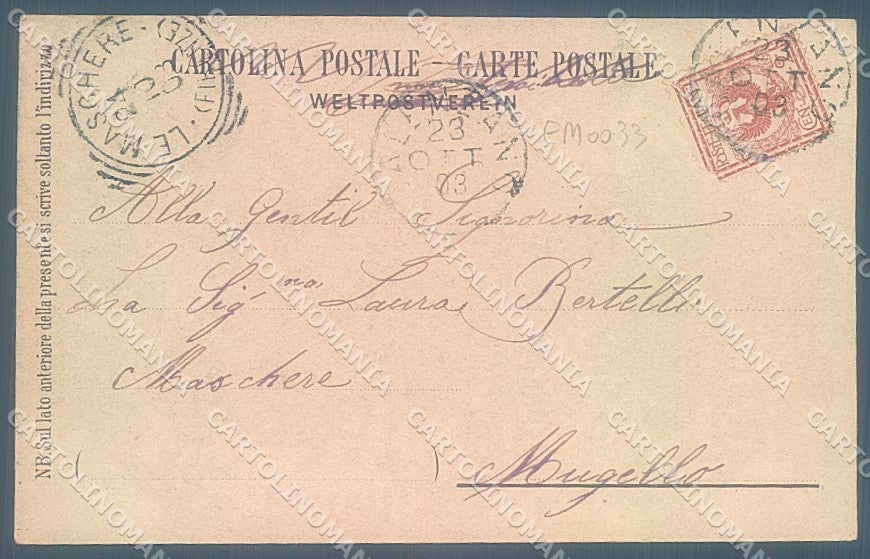 CARTOLINA POSTALE - CARTE POSTALE
WELTPOSTVEREIN
LE MASCHERE · (FIR
23
OTT
03
23
OTT
03
EM0033
Alla Gentil Signorina
La Sig.na Laura Bertelli
Maschere
Mugello
NB. Sul lato anteriore della presente si scrive soltanto l'indirizzo
CARTOLINOMANIA